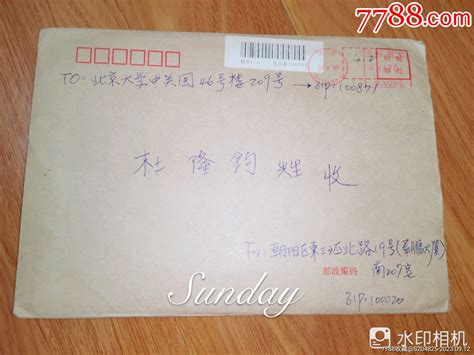 7788.com
TO:北京大学中关园46号楼209号
→ZIP=100871
杜隆鈞先生 收
From:朝阳区东三环北路19号(
邮政编码
南207室
ZIP=100020
Sunday
水印相机
7788收藏@8204825-2023.09.12